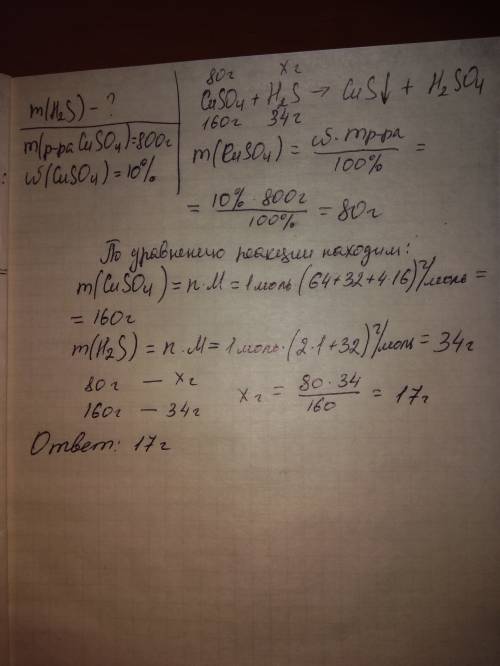 m(H₂S) - ?
m(р-ра CuSO₄)=800г
ω(CuSO₄)=10%
80г xг
CuSO₄ + H₂S → CuS↓ + H₂SO₄
160г 34г
m(CuSO₄) = ω·mр-ра / 100% =
= 10%·800г / 100% = 80г
По уравнению реакции находим:
m(CuSO₄) = n·M = 1моль·(64+32+4·16)г/моль =
= 160г
m(H₂S) = n·M = 1моль·(2·1+32)г/моль = 34г
80г — xг
160г — 34г
xг = 80·34 / 160 = 17г
Ответ: 17г